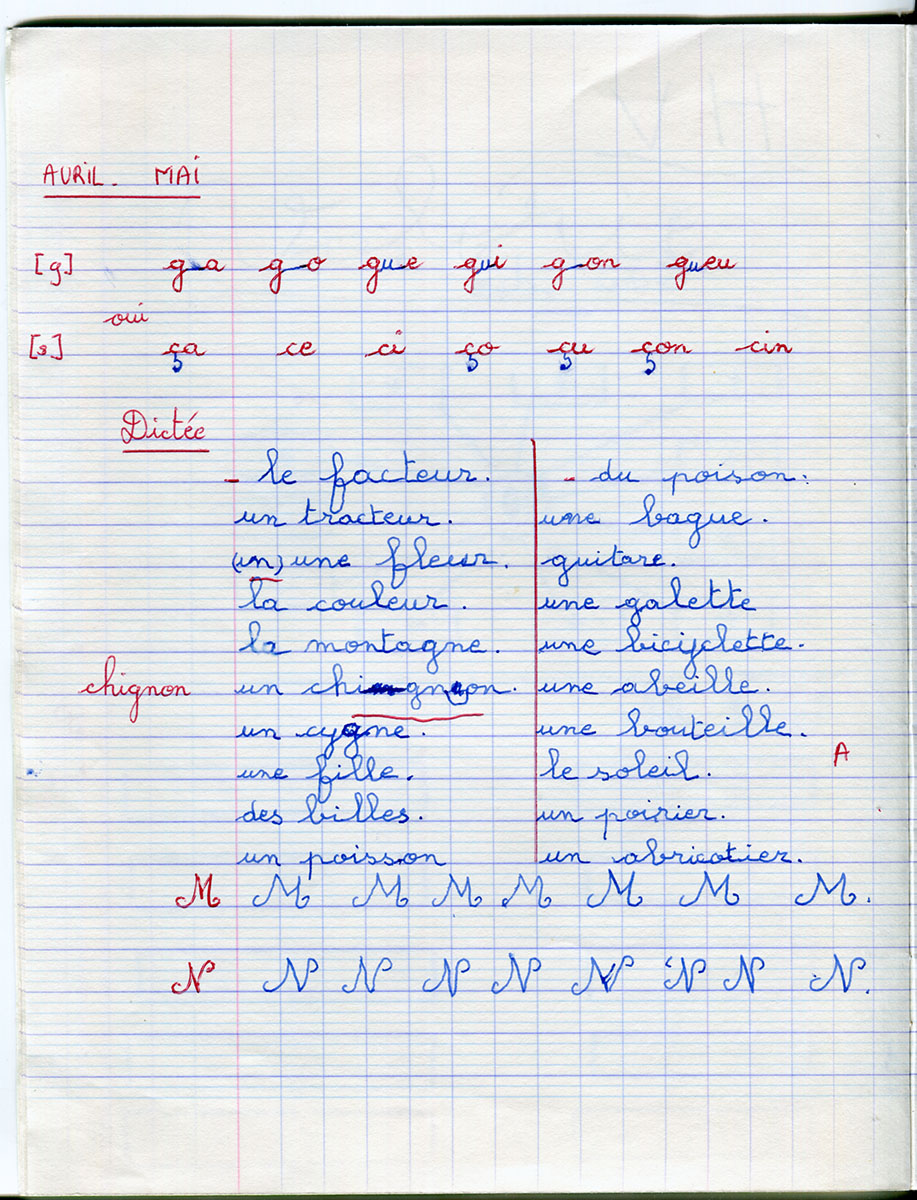 AVRIL. MAI
[g] ga go gue gui gon gueu
oui
[s] ça ce ci ço çu çon cin
Dictée
- le facteur.
un tracteur.
(un) une fleur.
la couleur.
la montagne.
chignon un chigneon.
un cygne.
une fille.
des billes.
un poisson
- du poison.
une bague.
guitare.
une galette
une bicyclette.
une abeille.
une bouteille.
le soleil.
un poirier.
un abricotier.
A
M M M M M M M M.
N N N N N N N N N.